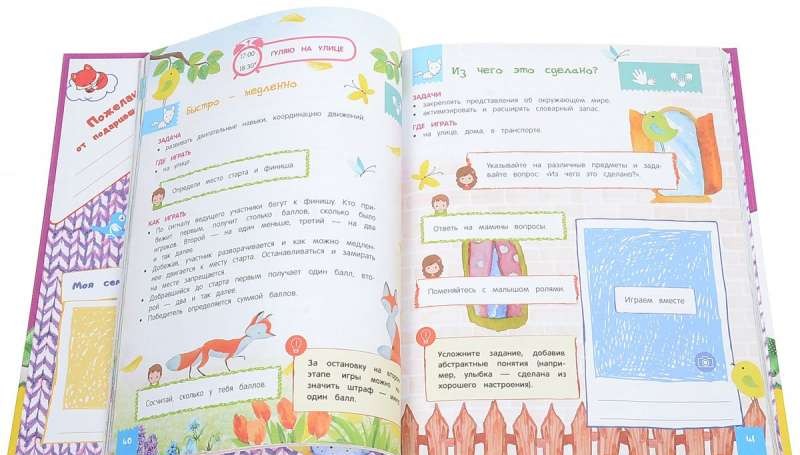 Пожелан
от подаривш
Моя сем
17:00
18:30
ГУЛЯЮ НА УЛИЦЕ
Быстро – медленно
ЗАДАЧА
• развивать двигательные навыки, координацию движений.
ГДЕ ИГРАТЬ
• на улице.
Определи место старта и финиша.
КАК ИГРАТЬ
• По сигналу ведущего участники бегут к финишу. Кто при-
бежит первым, получит столько баллов, сколько было
игроков. Второй — на один меньше, третий — на два
и так далее.
• Добежав, участник разворачивается и как можно медлен-
нее двигается к месту старта. Останавливаться и замирать
на месте запрещается.
• Добравшийся до старта первым получает один балл, вто-
рой — два и так далее.
• Победитель определяется суммой баллов.
Сосчитай, сколько у тебя баллов.
За остановку на втором
этапе игры можно
значить штраф —
один балл.
40
Из чего это сделано?
ЗАДАЧИ
• закрепить представления об окружающем мире;
• активизировать и расширять словарный запас.
ГДЕ ИГРАТЬ
• на улице, дома, в транспорте.
Указывайте на различные предметы и зада-
вайте вопрос: «Из чего это сделано?».
Ответь на мамины вопросы.
Поменяйтесь с малышом ролями.
Играем вместе
Усложните задание, добавив
абстрактные понятия (напри-
мер, улыбка — сделана из
хорошего настроения).
41